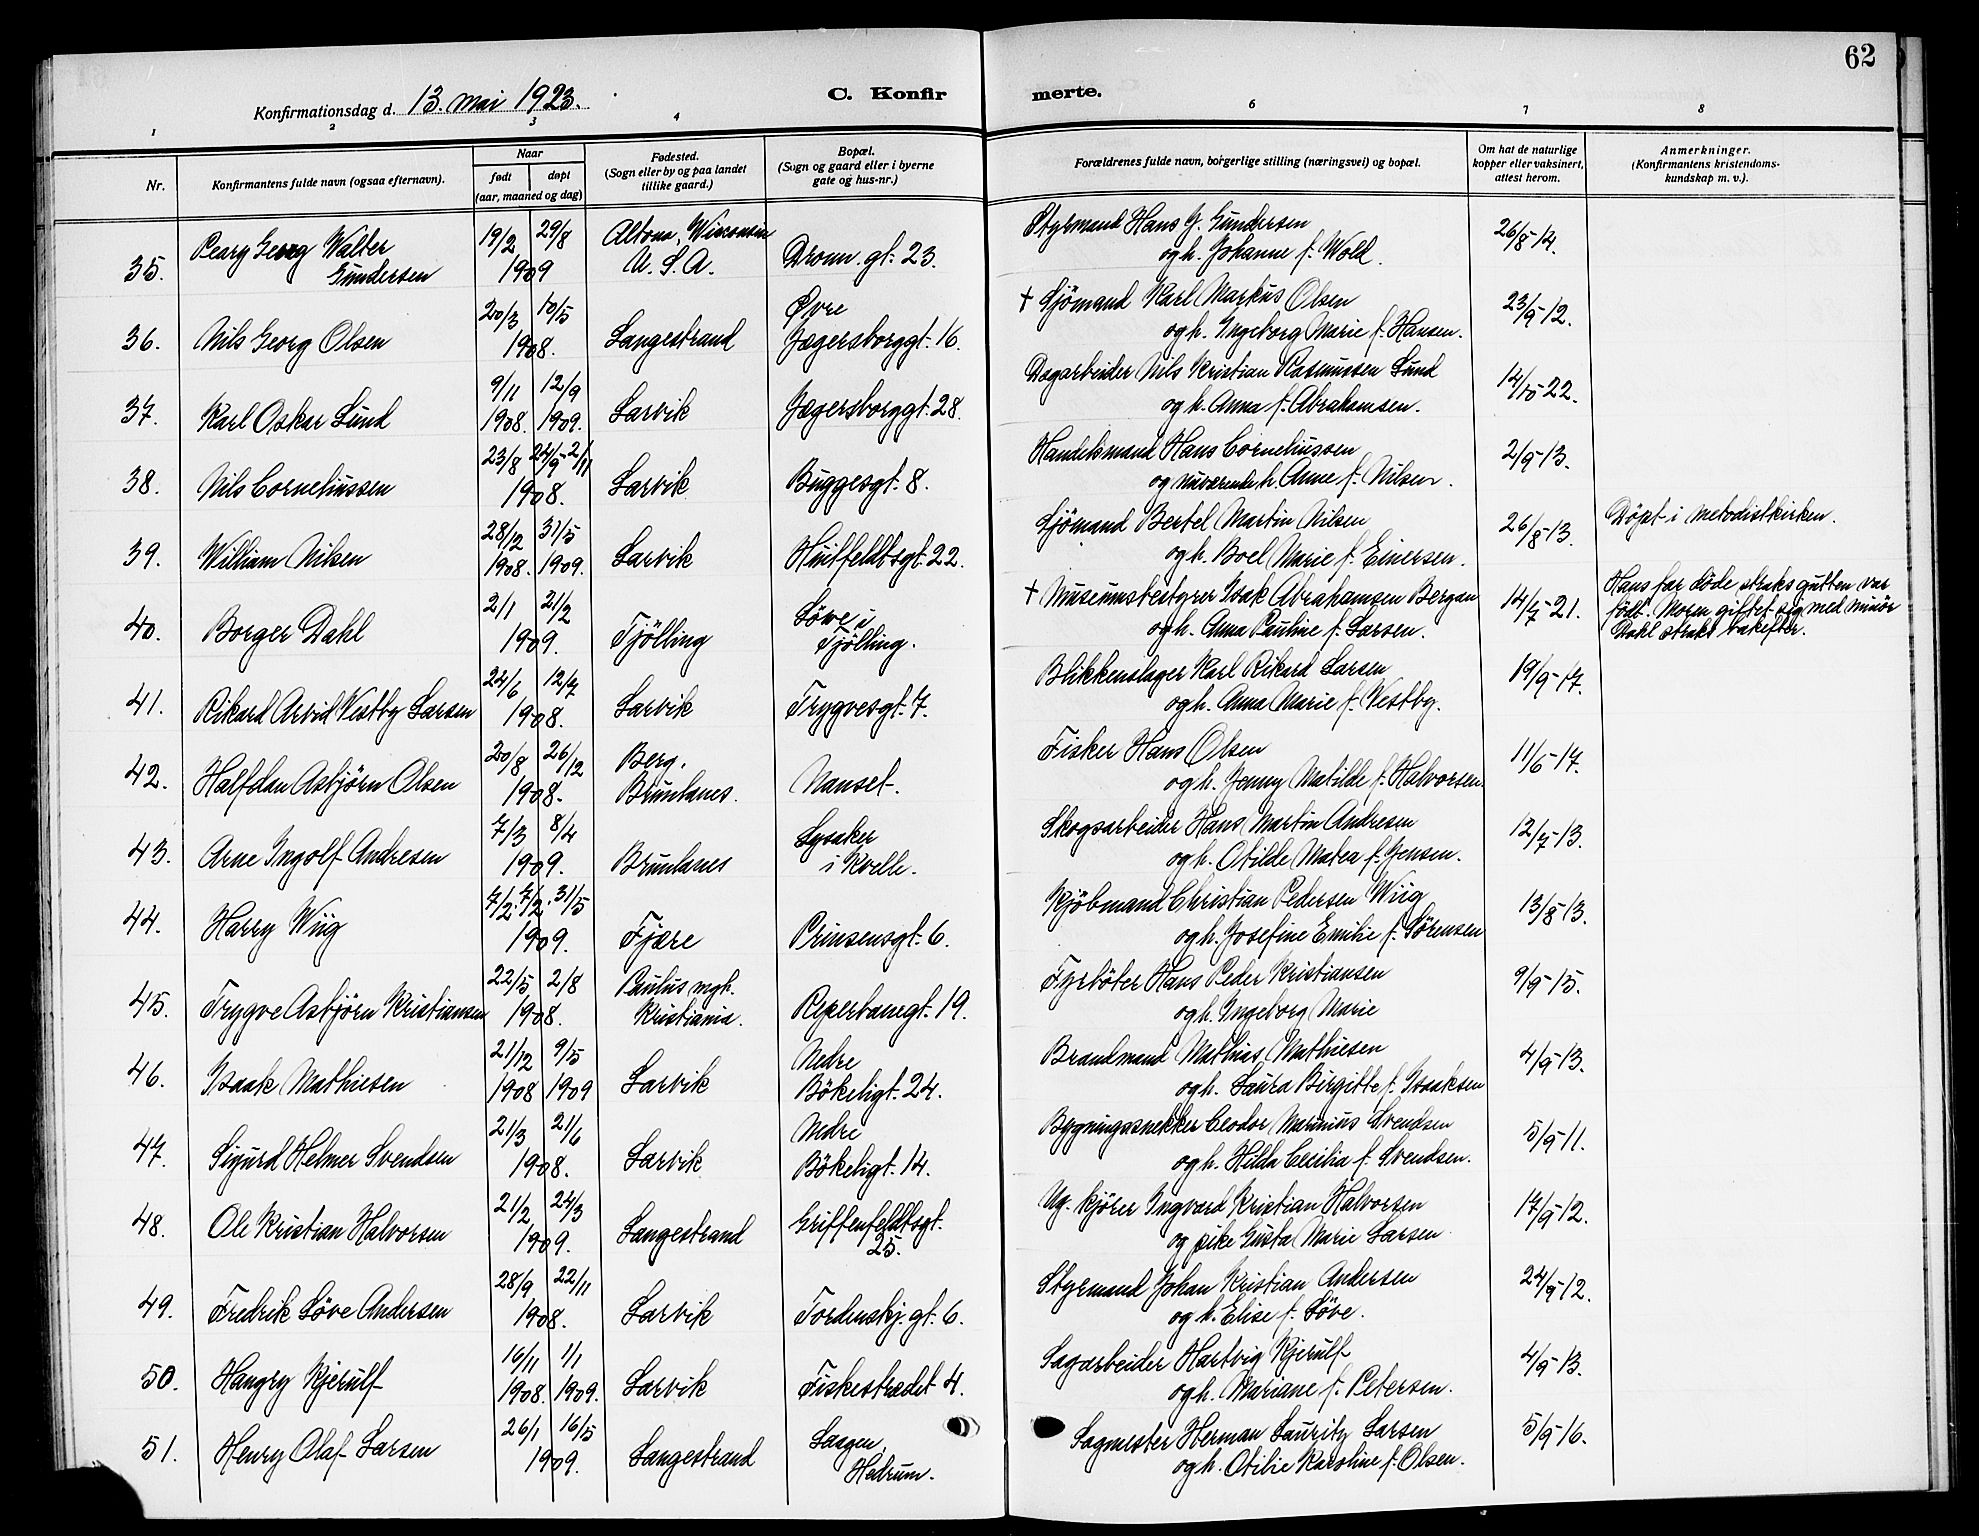 62
Konfirmationsdag d. 13. mai 1923.
C. Konfirmerte.
1 2 3 4 6 7 8
Nr.
Konfirmantens fulde navn (ogsaa efternavn).
Naar
født døpt
(aar, maaned og dag)
Fødested.
(Sogn eller by og paa landet
tillike gaard.)
Bopæl.
(Sogn og gaard eller i byerne
gate og hus-nr.)
Forældrenes fulde navn, borgerlige stilling (næringsvei) og bopæl.
Om hat de naturlige
kopper eller vaksinert,
attest herom.
Anmerkninger.
(Konfirmantens kristendoms-
kundskap m. v.).
35. Pearg Georg Walter
Gundersen
19/2 29/8
1909
Altona, Wisconsin
U. S. A.
Dronn. gt. 23.
Styrmand Hans G. Gundersen
og h. Johanne f. Wold.
26/8-14.
36. Nils Georg Olsen
20/3 10/5
1908.
Langestrand
Øvre
Jægersborggt. 16.
+ Sjömand Karl Markus Olsen
og h. Ingeborg Marie f. Hansen.
23/9-12.
37. Karl Oskar Lund
9/11 12/9
1908. 1909.
Larvik
Jægersborggt. 28.
Dagarbeider Nils Kristian Rasmussen Lund
og h. Anna f. Abrahamsen.
14/10-22.
38. Nils Corneliussen
23/8 24/9-2/11
1908.
Larvik
Buggesgt. 8.
Handelsmand Hans Corneliussen
og nuværende h. Anne f. Nilsen.
2/9-13.
39. William Nilsen
28/12 31/5
1908. 1909.
Larvik
Huitfeldtsgt. 22.
Sjömand Bertel Martin Nilsen
og h. Boel Marie f. Einersen.
26/8-13.
Döpt i metodistkirken.
40. Borger Dahl
2/1 21/2
1909.
Tjölling
Löve i
Tjölling.
+ Museumsbestyrer Isak Abrahamsen Bergan
og h. Anna Pauline f. Larsen.
14/7-21.
Hans far døde straks gutten var
født. Moren giftet sig med minör
Dahl straks bakefter.
41. Rikard Arvid Vestby Larsen
24/6 12/7
1908.
Larvik
Trygvesgt. 7.
Blikkenslager Karl Rikard Larsen
og h. Anna Marie f. Vestby.
19/9-17.
42. Halfdan Asbjörn Olsen
20/8 26/12
1908.
Berg.
Brunlanes.
Nanset.
Fisker Hans Olsen
og h. Jenny Matilde f. Halvorsen.
11/6-17.
43. Arne Ingolf Andresen
7/3 8/4
1909.
Brunlanes
Lysaker
i Kvelle.
Skogsarbeider Hans Martin Andresen
og h. Otilde Matea f. Jensen.
12/7-13.
44. Harry Wiig
7/2. 7/2. 31/5
1909.
Fjære
Prinsensgt. 6.
Kjöbmand Christian Pedersen Wiig
og h. Josefine Emilie f. Sörensen
13/8-13.
45. Trygve Asbjörn Kristiansen
22/5 2/8
1908.
Paulus mgh.
Kristiania.
Reperbanegt. 19.
Fyrböter Hans Peder Kristiansen
og h. Ingeborg Marie
9/9-15.
46. Isaak Mathiesen
21/12 9/5
1908 1909
Larvik
Nedre
Bökeligt. 24.
Brandmand Mathias Mathiesen
og h. Laura Birgitte f. Isaaksen
4/9-13.
47. Sigurd Helmer Svendsen
21/3 21/6
1908.
Larvik
Nedre
Bökeligt. 14.
Bygningssnekker Ceodor Marinius Svendsen
og h. Hilda Cecilia f. Svendsen.
5/9-11.
48. Ole Kristian Halvorsen
21/2 24/3
1909.
Langestrand
Griffenfeldtsgt.
25.
Ug. kjörer Ingvard Kristian Halvorsen
og pike Gusta Marie Larsen
17/9-12.
49. Fredrik Löve Andersen
28/9 22/11
1908.
Larvik
Tordenskj. gt. 6.
Styrmand Johan Kristian Andersen
og h. Elise f. Löve.
24/9-12.
50. Hangry Kjerulf
16/11 1/1
1908. 1909.
Larvik
Fiskestrædet 4.
Sagarbeider Hartvig Kjerulf
og h. Mariane f. Petersen.
4/9-13.
51. Henry Olaf Larsen
26/1 16/5
1909.
Langestrand
Hedrum.
Sagmester Herman Lauritz Larsen
og h. Otilie Karoline f. Olsen.
5/9-16.